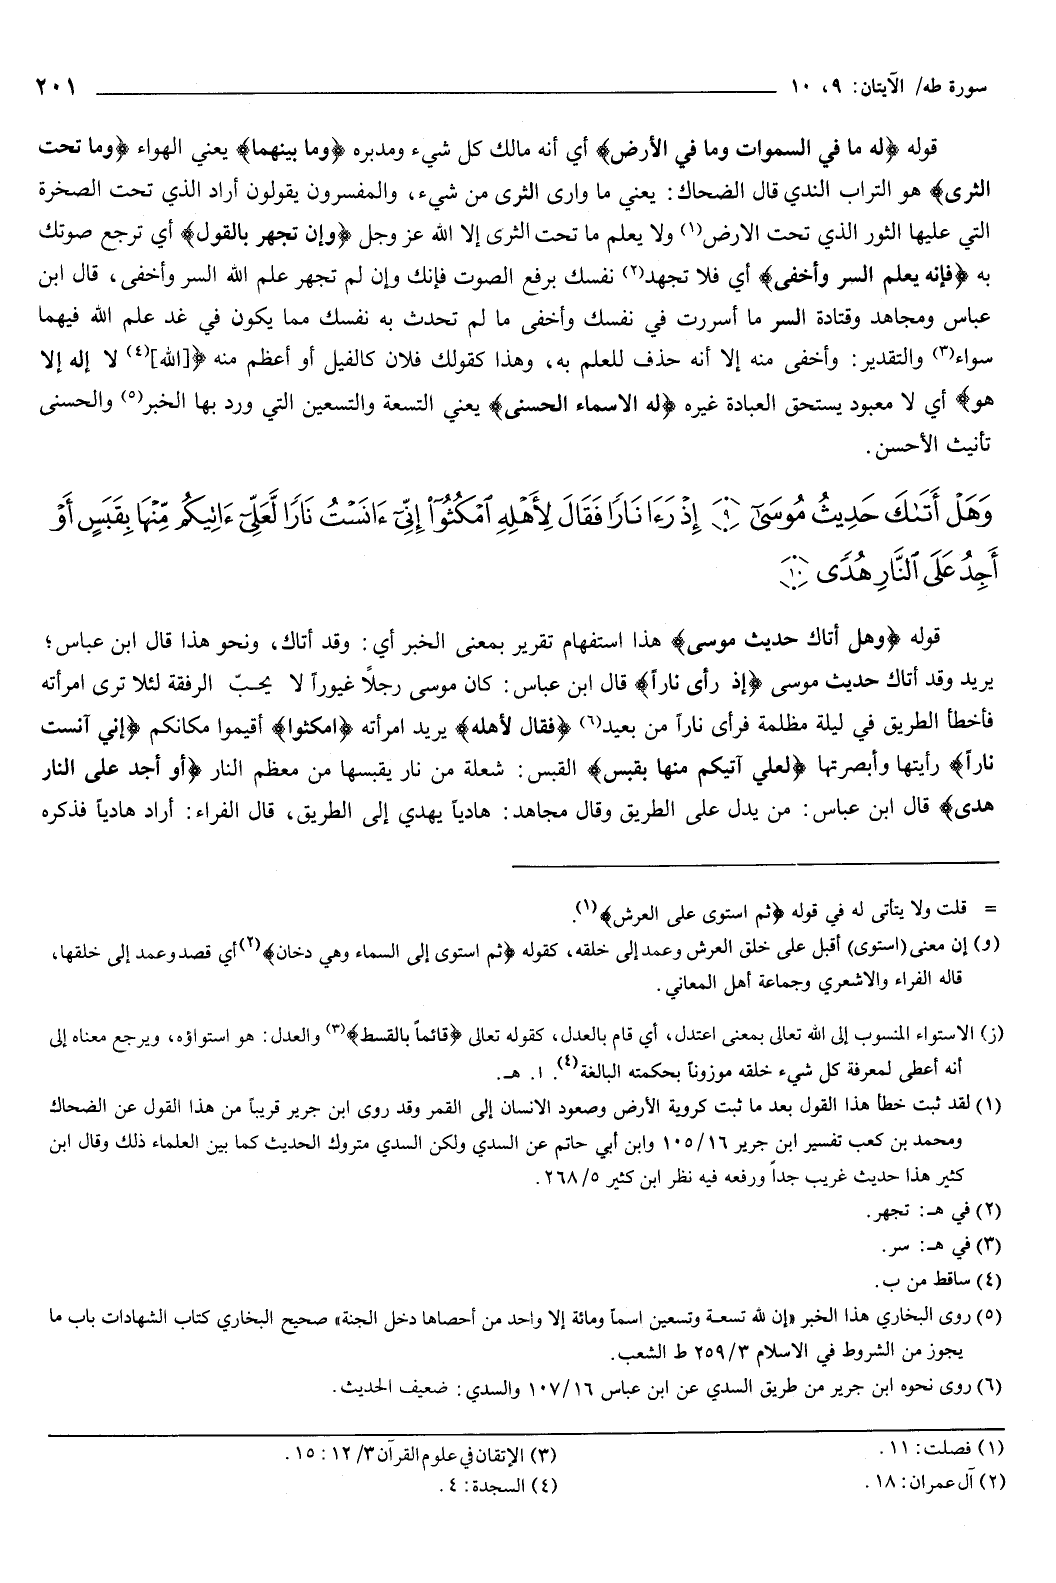 سورة طه/ الآيتان: ٩، ١٠ ٢٠١
قوله ﴿له ما في السموات وما في الأرض﴾ أي أنه مالك كل شيء ومدبره ﴿وما بينهما﴾ يعني الهواء ﴿وما تحت
الثرى﴾ هو التراب الندي قال الضحاك: يعني ما وارى الثرى من شيء، والمفسرون يقولون أراد الذي تحت الصخرة
التي عليها الثور الذي تحت الارض(١) ولا يعلم ما تحت الثرى إلا الله عز وجل ﴿وإن تجهر بالقول﴾ أي ترجع صوتك
به ﴿فإنه يعلم السر وأخفى﴾ أي فلا تجهد(٢) نفسك برفع الصوت فإنك وإن لم تجهر علم الله السر وأخفى، قال ابن
عباس ومجاهد وقتادة السر ما أسررت في نفسك وأخفى ما لم تحدث به نفسك مما يكون في غد علم الله فيهما
سواء(٣) والتقدير: وأخفى منه إلا أنه حذف للعلم به، وهذا كقولك فلان كالفيل أو أعظم منه ﴿[الله](٤) لا إله إلا
هو﴾ أي لا معبود يستحق العبادة غيره ﴿له الاسماء الحسنى﴾ يعني التسعة والتسعين التي ورد بها الخبر(٥) والحسنى
تأنيث الأحسن.
وَهَلْ أَتَىٰكَ حَدِيثُ مُوسَىٰٓ ٩ إِذْ رَءَا نَارًا فَقَالَ لِأَهْلِهِ ٱمْكُثُوٓا۟ إِنِّىٓ ءَانَسْتُ نَارًا لَّعَلِّىٓ ءَاتِيكُم مِّنْهَا بِقَبَسٍ أَوْ
أَجِدُ عَلَى ٱلنَّارِ هُدًى ١٠
قوله ﴿وهل أتاك حديث موسى﴾ هذا استفهام تقرير بمعنى الخبر أي: وقد أتاك، ونحو هذا قال ابن عباس؛
يريد وقد أتاك حديث موسى ﴿إذ رأى ناراً﴾ قال ابن عباس: كان موسى رجلاً غيوراً لا يحبّ الرفقة لئلا ترى امرأته
فأخطأ الطريق في ليلة مظلمة فرأى ناراً من بعيد(٦) ﴿فقال لأهله﴾ يريد امرأته ﴿امكثوا﴾ أقيموا مكانكم ﴿إني آنست
ناراً﴾ رأيتها وأبصرتها ﴿لعلي آتيكم منها بقبس﴾ القبس: شعلة من نار يقبسها من معظم النار ﴿أو أجد على النار
هدى﴾ قال ابن عباس: من يدل على الطريق وقال مجاهد: هادياً يهدي إلى الطريق، قال الفراء: أراد هادياً فذكره
= قلت ولا يتأتى له في قوله ﴿ثم استوى على العرش﴾(١).
(و) إن معنى (استوى) أقبل على خلق العرش وعمد إلى خلقه، كقوله ﴿ثم استوى إلى السماء وهي دخان﴾(٢) أي قصد وعمد إلى خلقها،
قاله الفراء والاشعري وجماعة أهل المعاني.
(ز) الاستواء المنسوب إلى الله تعالى بمعنى اعتدل، أي قام بالعدل، كقوله تعالى ﴿قائماً بالقسط﴾(٣) والعدل: هو استواؤه، ويرجع معناه إلى
أنه أعطى لمعرفة كل شيء خلقه موزوناً بحكمته البالغة(٤). ا. هـ.
(١) لقد ثبت خطأ هذا القول بعد ما ثبت كروية الأرض وصعود الانسان إلى القمر وقد روى ابن جرير قريباً من هذا القول عن الضحاك
ومحمد بن كعب تفسير ابن جرير ١٦/ ١٠٥ وابن أبي حاتم عن السدي ولكن السدي متروك الحديث كما بين العلماء ذلك وقال ابن
كثير هذا حديث غريب جداً ورفعه فيه نظر ابن كثير ٥/ ٢٦٨.
(٢) في هـ: تجهر.
(٣) في هـ: سر.
(٤) ساقط من ب.
(٥) روى البخاري هذا الخبر «إن لله تسعة وتسعين اسماً ومائة إلا واحد من أحصاها دخل الجنة» صحيح البخاري كتاب الشهادات باب ما
يجوز من الشروط في الاسلام ٣/ ٢٥٩ ط الشعب.
(٦) روى نحوه ابن جرير من طريق السدي عن ابن عباس ١٦/ ١٠٧ والسدي: ضعيف الحديث.
(١) فصلت: ١١.
(٢) آل عمران: ١٨.
(٣) الإتقان في علوم القرآن ٣/ ١٢: ١٥.
(٤) السجدة: ٤.